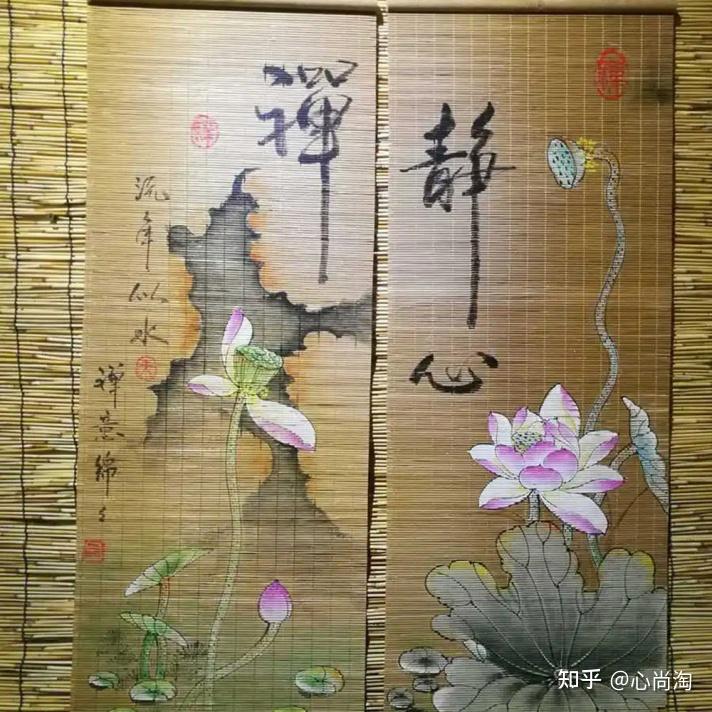 禪
流年似水
禅意綿々
靜心
禅
知乎 @心尚淘